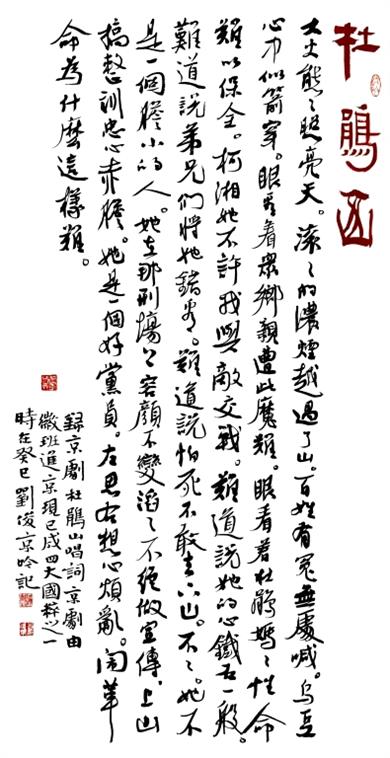 杜鵑山
大火熊〻照亮天。滾〻的濃煙越過了山。百姓有冤無處喊。烏豆
心中似箭穿。眼看着眾鄉親遭此魔難。眼看着杜鵑媽〻性命
難以保全。柯湘她不許我與敵交戰。難道說她的心鐵石一般。
難道說弟兄們將她錯看。難道說怕死不敢去下山。不〻。她不
是一個膽小的人。她在那刑場上容顏不變滔〻不絕做宣傳。上山
搞整訓忠心赤膽。她是一個好黨員。左思右想心煩亂。鬧革
命為什麼這樣難。
錄京劇杜鵑山唱詞京劇由
徽班進京現已成四大國粹之一
時在癸巳劉俊京吟記